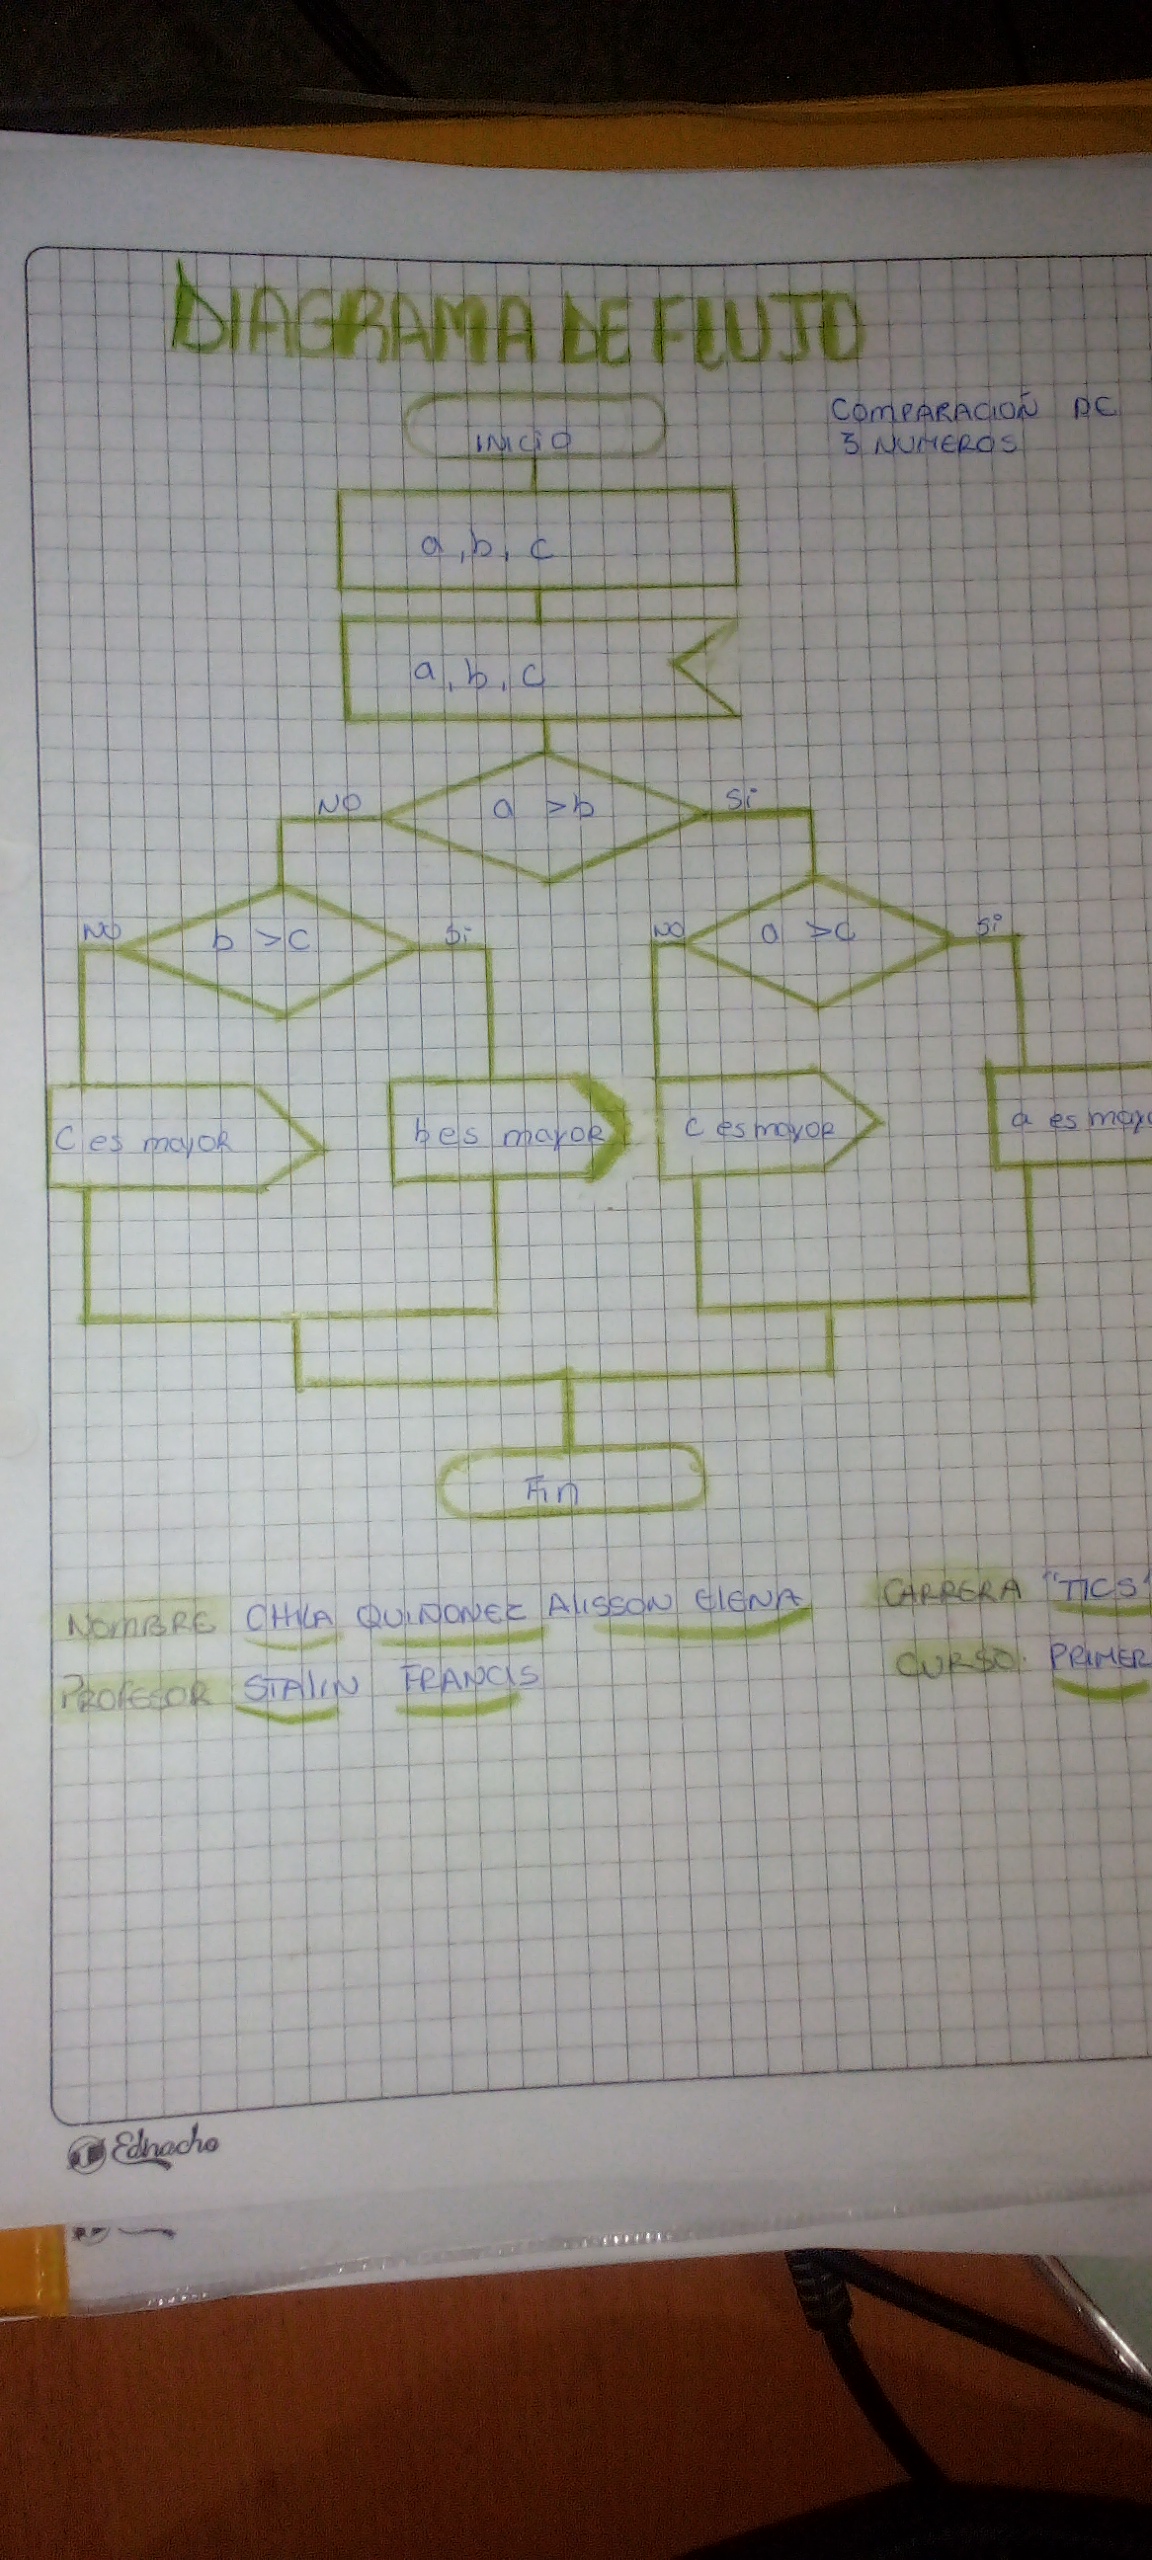 DIAGRAMA DE FLUJO
COMPARACIÓN DC
3 NUMEROS
INICIO
a, b, c
a, b, c
NO a > b Si
NO b > c Si NO a > c Si
C es mayor b es mayor c es mayor a es mayo
Fin
NOMBRE CHILA QUIÑONEZ ALISSON ELENA CARRERA "TICS"
PROFESOR STALIN FRANCIS CURSO: PRIMER
Ednacho